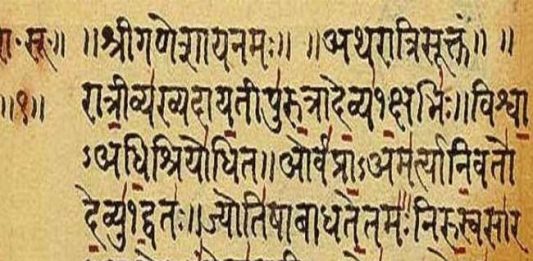 रा॰ सू॰॥ ॥श्रीगणेशायनमः॥ ॥अथरात्रिसूक्तं॥ ॥
॥१॥ रात्रीव्यख्यदायतीपुरुत्रादेव्य१क्षभिः॥विश्वा
ऽअधिश्रियोधित॥ओर्वप्राऽअमर्त्यानिवतो
देव्यु१द्वतः॥ज्योतिषाबाधतेतमः॥निरुस्वसार